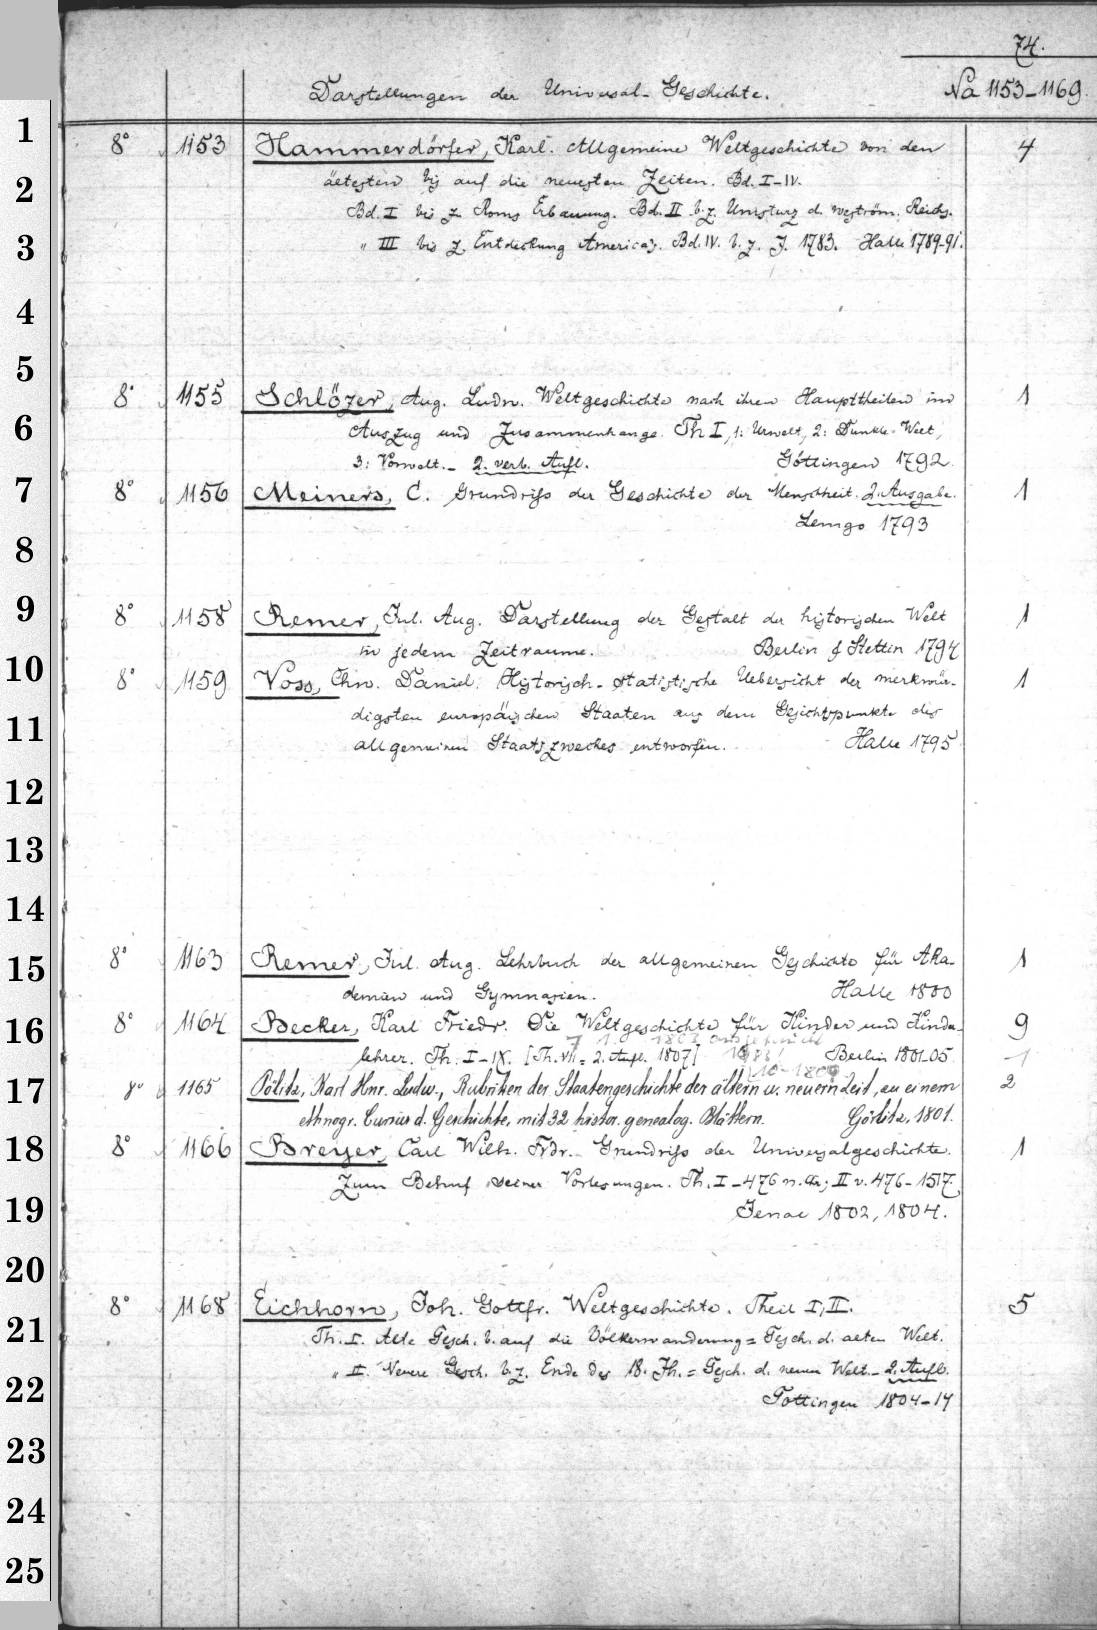 74.
Darstellungen der Universal-Geschichte. Na 1153-1169.
1
8° 1153 Hammerdörfer, Karl. Allgemeine Weltgeschichte von den 4
2
ältesten bis auf die neuesten Zeiten. Bd. I-IV.
Bd. I bis z. Roms Erbauung. Bd. II b. z. Umsturz d. weström. Reichs.
3
" III bis z. Entdeckung Americas. Bd. IV. b. z. J. 1783. Halle 1789-91.
4
5
8° 1155 Schlözer, Aug. Ludw. Weltgeschichte nach ihren Haupttheilen im 1
6
Auszug und Zusammenhange. Th I, 1: Urwelt, 2: Dunkle Welt,
3: Vorwelt. - 2. verb. Aufl. Göttingen 1792.
7
8° 1156 Meiners, C. Grundriss der Geschichte der Menschheit. 2. Ausgabe. 1
Lemgo 1793
8
9
8° 1158 Remer, Jul. Aug. Darstellung der Gestalt der historischen Welt 1
in jedem Zeitraume. Berlin & Stettin 1794
10
8° 1159 Voss, Chn. Daniel. Historisch-statistische Uebersicht der merkwür- 1
digsten europäischen Staaten aus dem Gesichtspunkte des
11
allgemeinen Staatszweckes entworfen. Halle 1795
12
13
14
15
8° 1163 Remer, Jul. Aug. Lehrbuch der allgemeinen Geschichte für Aka- 1
demien und Gymnasien. Halle 1800
16
8° 1164 Becker, Karl Friedr. Die Weltgeschichte für Kinder und Kinder- 9
lehrer. Th. I-IX. [Th. VII = 2. Aufl. 1807] Berlin 1801-05.
17
8° 1165 Pölitz, Karl Hnr. Ludw., Rubriken der Staatengeschichte der ältern u. neuern Zeit, zu einem 2
ethnogr. Cursus d. Geschichte, mit 32 histor. genealog. Blättern. Görlitz, 1801.
18
8° 1166 Breyer, Carl Wilh. Frdr. Grundriss der Universalgeschichte. 1
Zum Behuf seiner Vorlesungen. Th. I - 476 n. Chr; II v. 476-1517.
19
Jenae 1802, 1804.
20
8° 1168 Eichhorn, Joh. Gottfr. Weltgeschichte. Theil I, II. 5
21
Th. I. Alte Gesch. b. auf die Völkerwanderung = Gesch. d. alten Welt.
" II. Neuere Gesch. b. z. Ende des 18. Jh. = Gesch. d. neuen Welt. - 2. Aufl.
22
Göttingen 1804-14
23
24
25